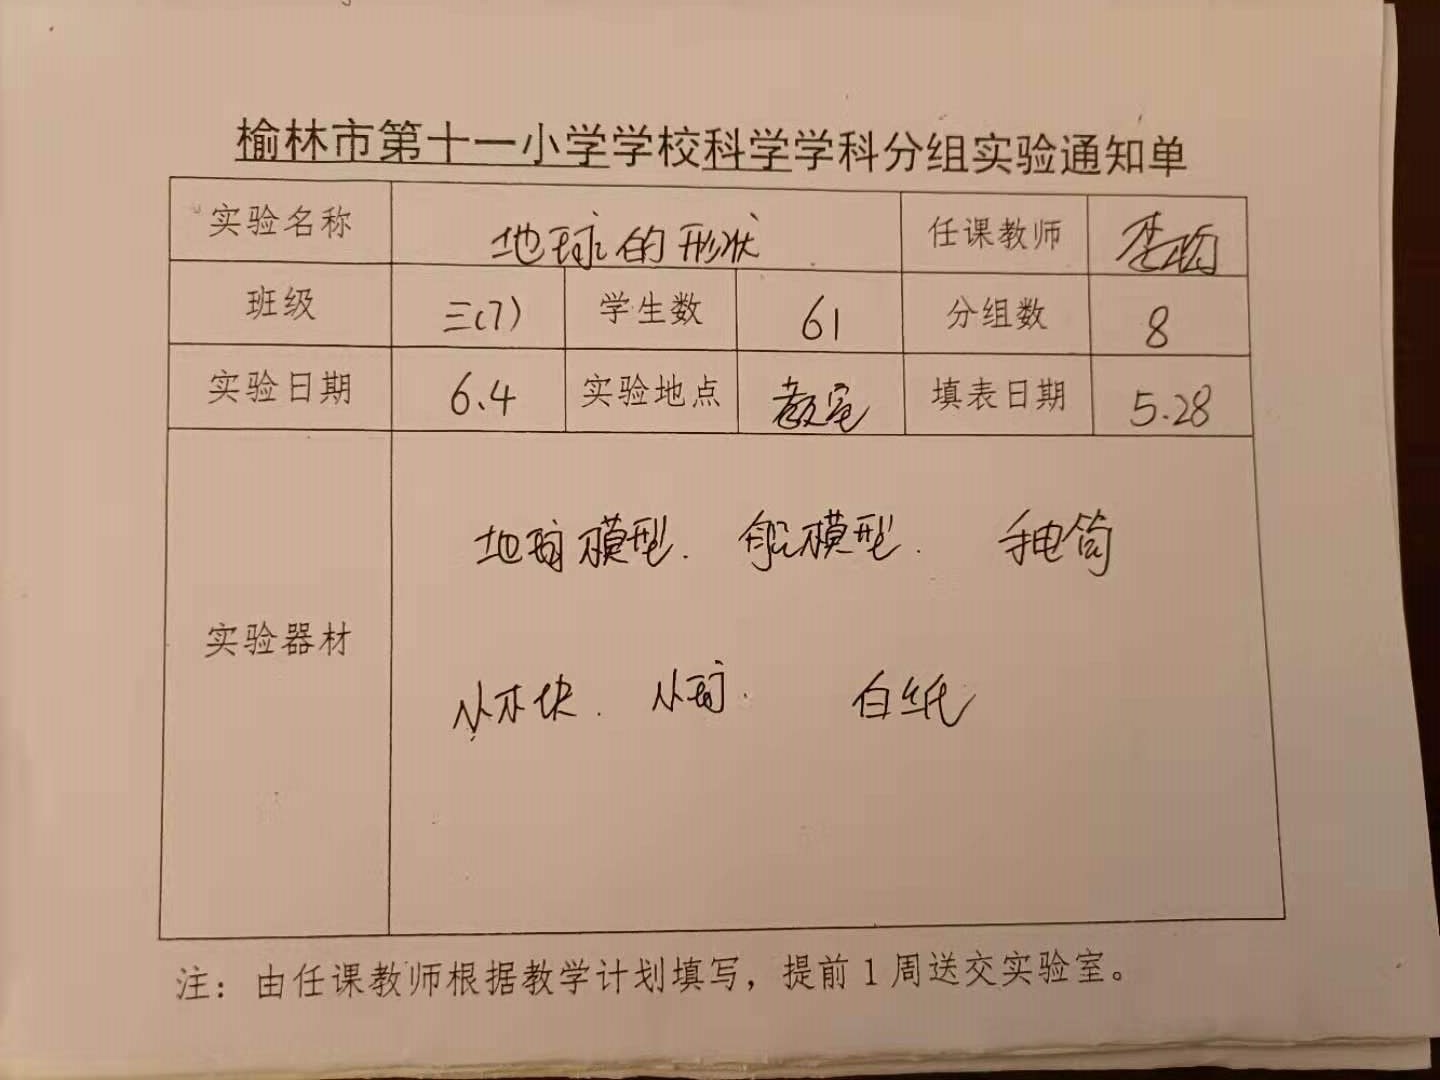 榆林市第十一小学学校科学学科分组实验通知单
实验名称 地球的形状 任课教师
班级 三(7) 学生数 61 分组数 8
实验日期 6.4 实验地点 教室 填表日期 5.28
实验器材
地球模型. 船模型. 手电筒
小木块. 小球. 白纸
注：由任课教师根据教学计划填写，提前1周送交实验室。